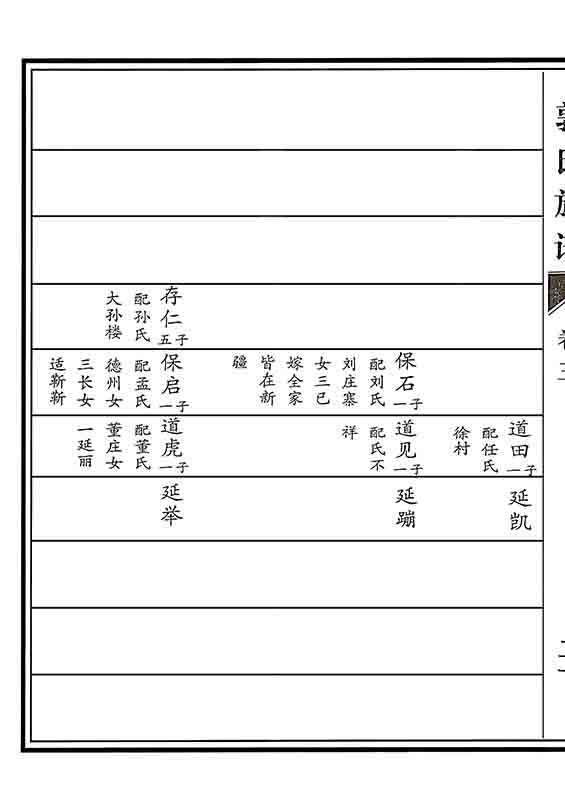 郭氏族谱
卷三
存仁
五子
配孙氏
大孙楼
保石
一子
配刘氏
刘庄寨
女三已
嫁全家
皆在新
疆
保启
一子
配孟氏
德州女
三长女
适靳靳
道田
一子
配任氏
徐村
道见
一子
配氏不
祥
道虎
一子
配董氏
董庄女
一延丽
延凯
延蹦
延举